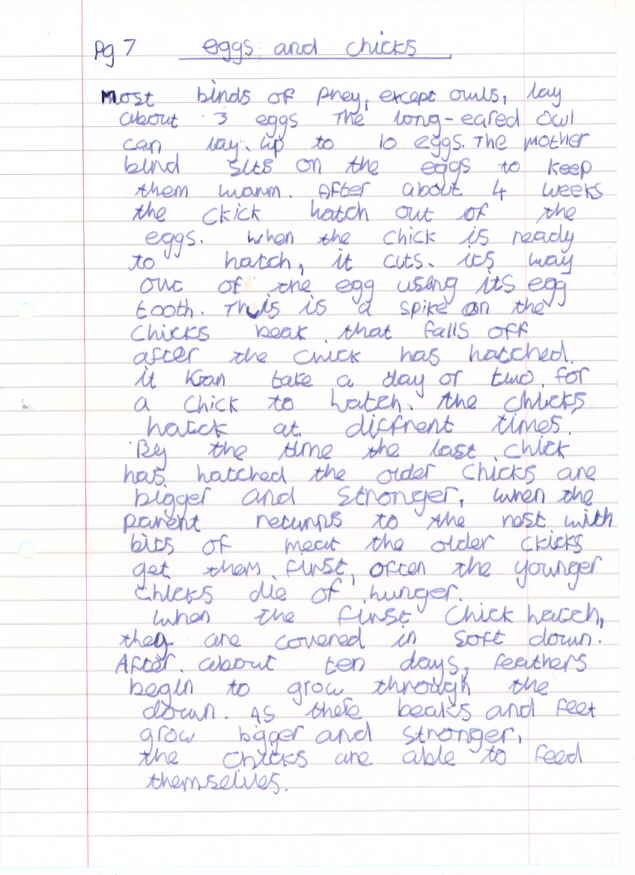 Pg 7 eggs and chicks
Most birds of prey, except owls, lay
about 3 eggs The long-eared owl
can lay up to 10 eggs. The mother
bird sits on the eggs to keep
them warm. After about 4 weeks
the ckick hatch out of the
eggs. when the chick is ready
to hatch, it cuts its way
out of the egg using its egg
tooth. This is a spike on the
chicks beak that falls off
after the chick has hatched.
it kan take a day or two for
a chick to hatch. the chicks
hatck at diffrent times.
By the time the last chick
has hatched the older chicks are
bigger and stronger, when the
parent returns to the nest with
bits of meat the older ckicks
get them first, often the younger
chicks die of hunger.
when the first chick hatch,
they are covered in soft down.
After about ten days, feathers
begin to grow through the
down. As there beaks and feet
grow bigger and stronger,
the chicks are able to feed
themselves.